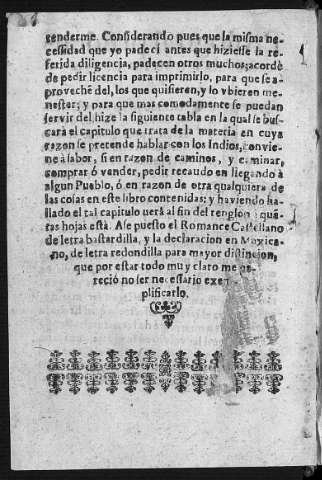 tenderme. Considerando pues que la misma ne-
cessidad que yo padeci antes que hiziesse la re-
ferida diligencia, padecen otros muchos; acordè
de pedir licencia para imprimirlo, para que se a-
proveché del, los que quisieren, y lo vbieren me-
nester; y para que mas comodamente se puedan
servir del, hize la siguiente tabla en la qual se bus-
cará el capitulo que trata de la materia en cuya
razon se pretende hablar con los Indios, convie-
ne à labor, si en razon de caminos, y caminar,
comprar ò vender, pedir recaudo en llegando à
algun Pueblo, ó en razon de otra qualquiera de
las cosas en este libro contenidas; y haviendo ha-
llado el tal capitulo uerá al fin del renglon à quá-
tas hojas està. Ase puesto el Romance Castellano
de letra bastardilla, y la declaracion en Mexica-
no, de letra redondilla para mayor distincion,
que por estar todo muy claro me pa-
reció no ser necessario exem-
plificarlo.